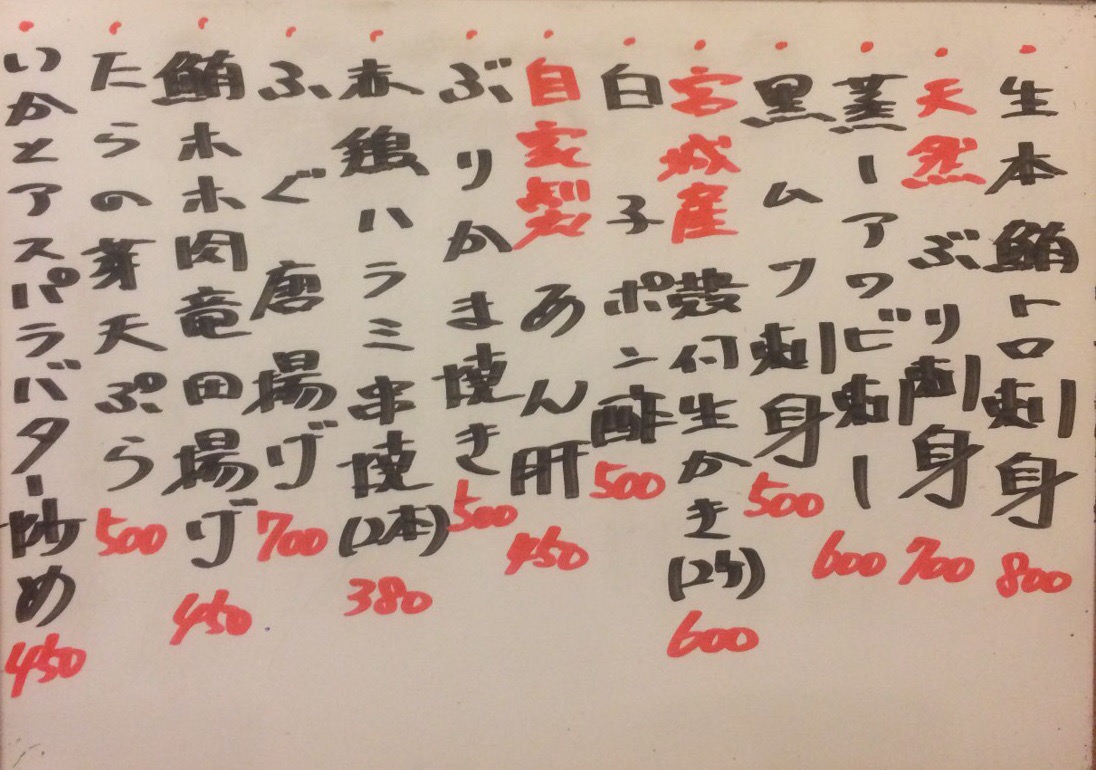 ・生本鮪トロ刺身 800
・天然ぶり刺身 700
・蒸しアワビ刺し 600
・黒ムツ刺身 500
・宮城産殻付生かき(2ケ) 600
・白子ポン酢 500
・自家製あん肝 450
・ぶりかま焼き 500
・赤鶏ハラミ串焼(2本) 380
・ふぐ唐揚げ 700
・鮪ホホ肉竜田揚げ 450
・たらの芽天ぷら 500
・いかとアスパラバター炒め 450